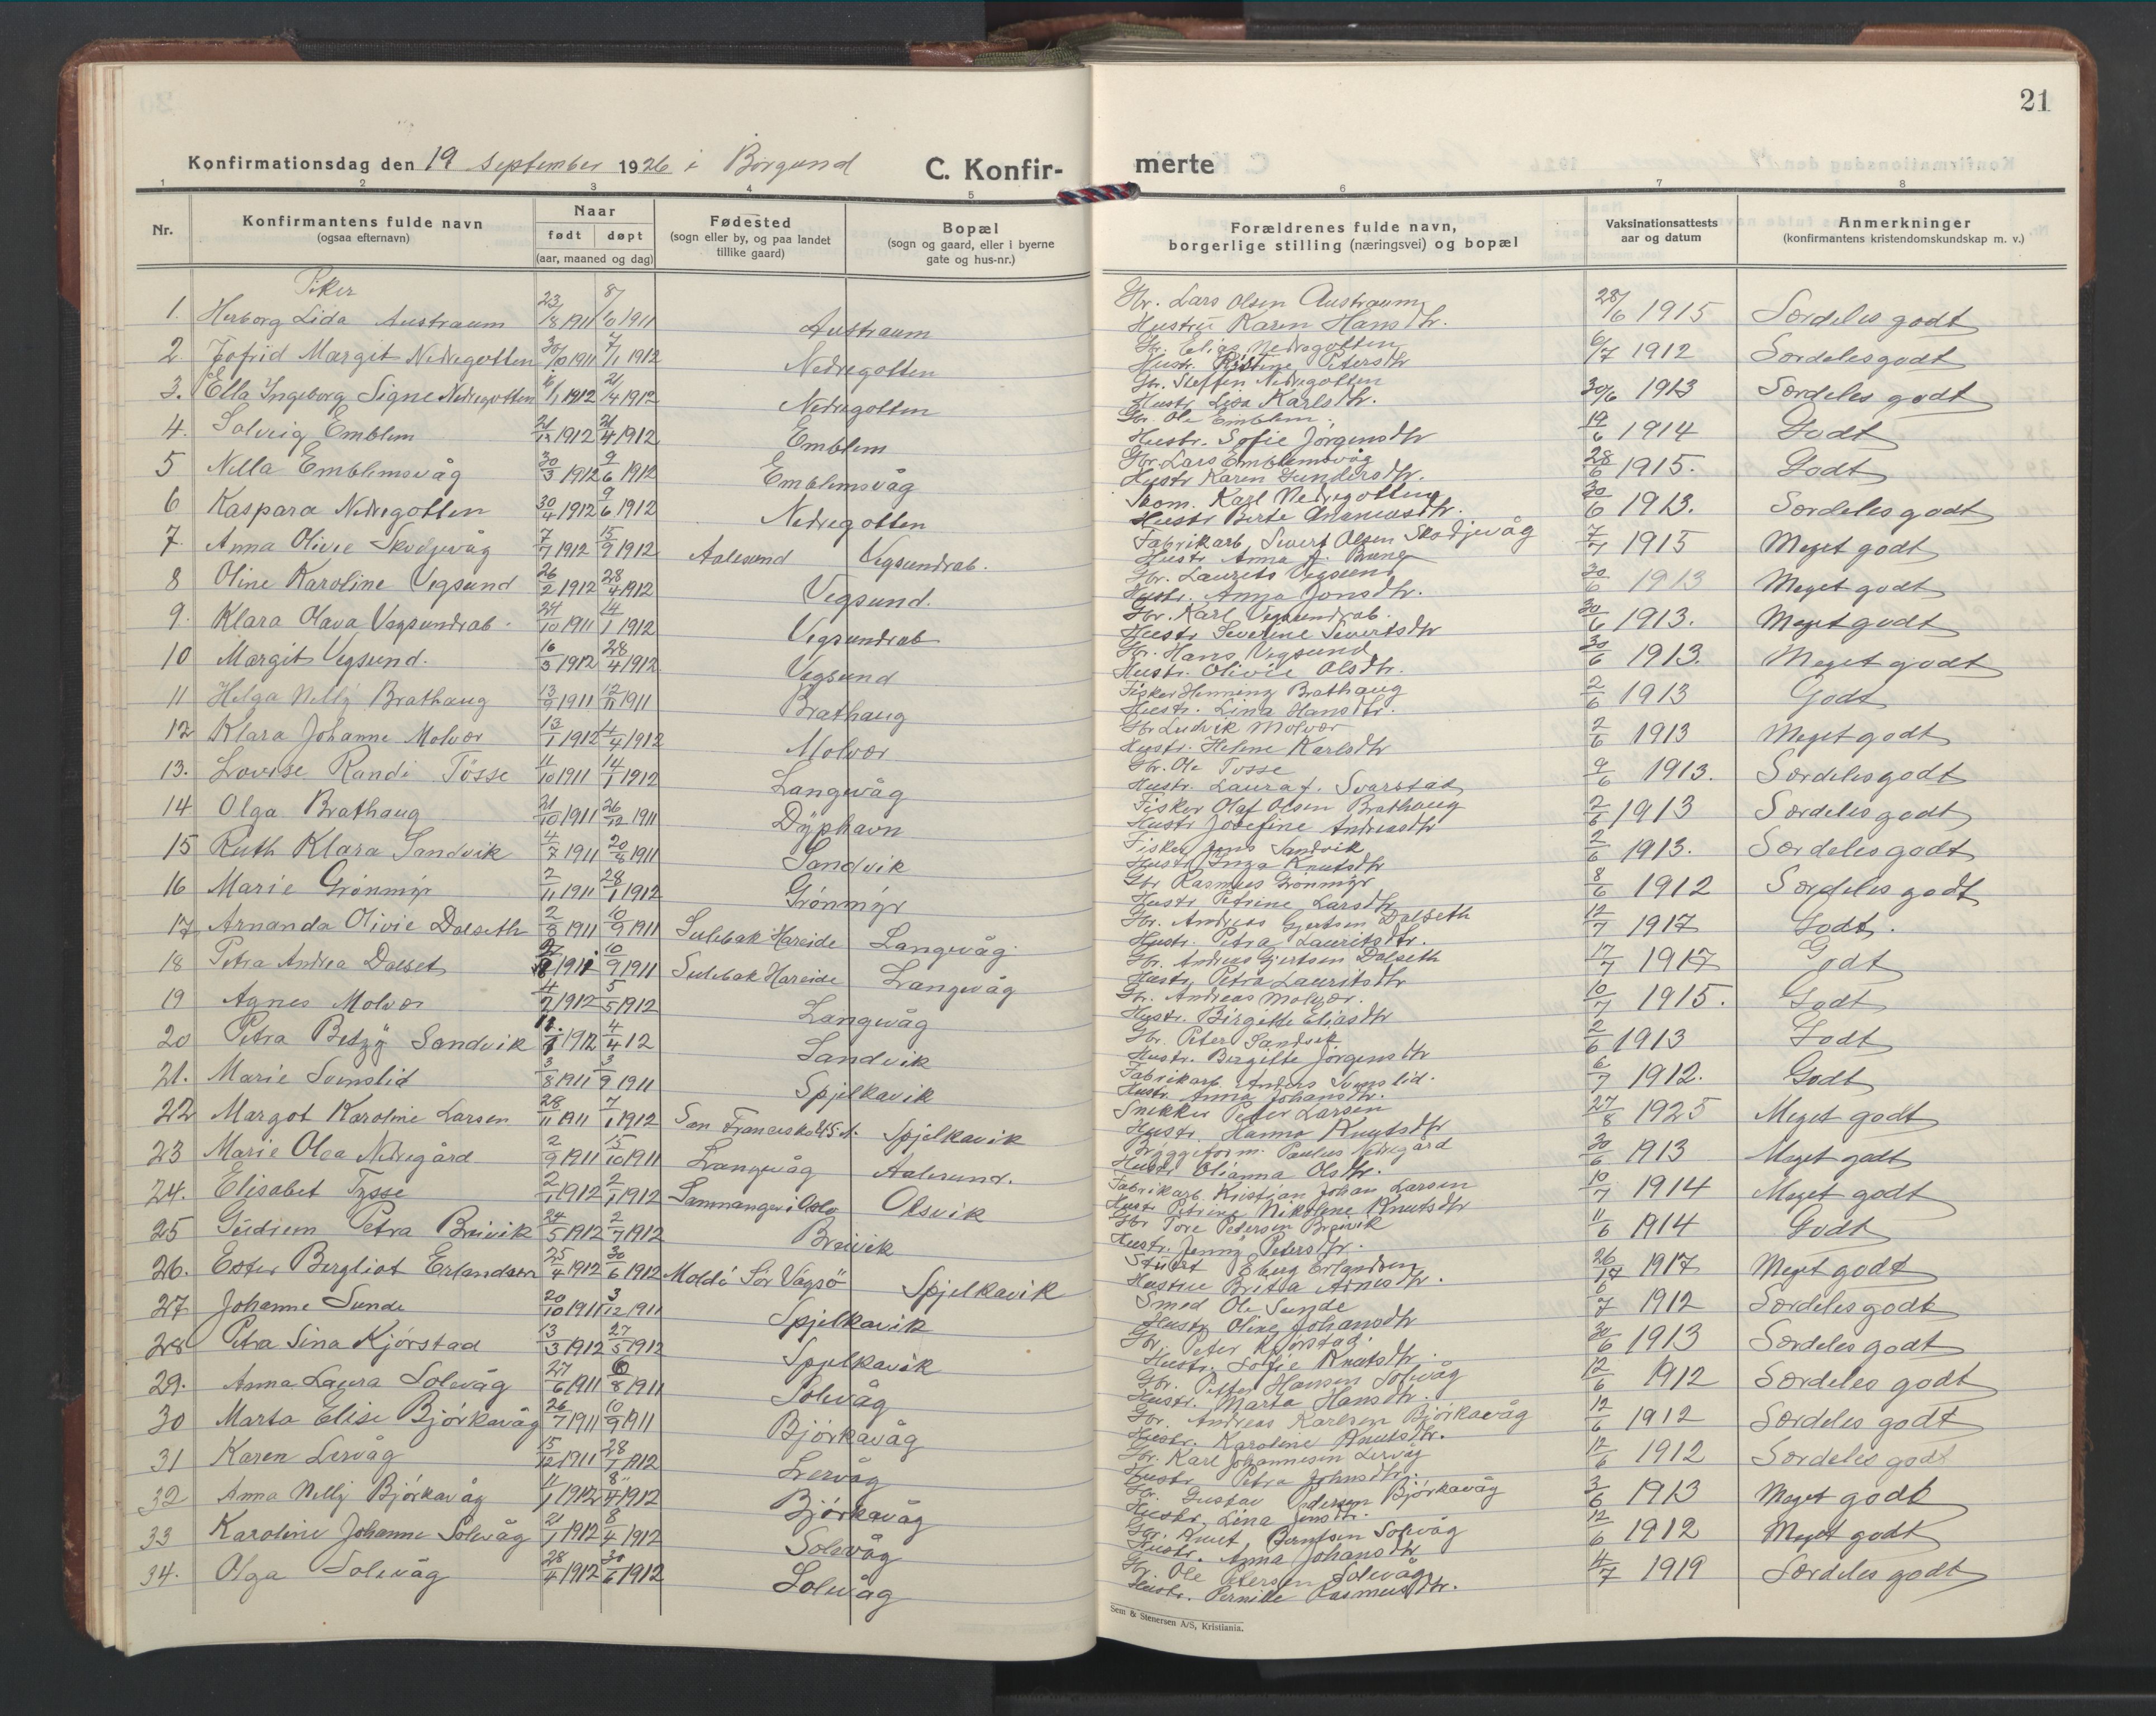 21
Konfirmationsdag den 19 september 1926 i Borgund
C. Konfir-
merte
1 2 3 4 5 6 7 8
Nr.
Konfirmantens fulde navn
(ogsaa efternavn)
Naar
født døpt
(aar, maaned og dag)
Fødested
(sogn eller by, og paa landet
tillike gaard)
Bopæl
(sogn og gaard, eller i byerne
gate og hus-nr.)
Forældrenes fulde navn,
borgerlige stilling (næringsvei) og bopæl
Vaksinationsattests
aar og datum
Anmerkninger
(konfirmantens kristendomskundskap m. v.)
Piker
1. Herborg Lida Austraum 23/8 1911 8/10 1911 Austraum Gbr. Lars Olsen Austraum Hustru Karen Hansdtr. 28/6 1915 Særdeles godt
2 Jofrid Margit Nedregotten 30/10 1911 7/1 1912 Nedregotten Gbr. Elias Nedregotten Hustr. Kristine Petersdtr 6/7 1912 Særdeles godt
3. Ella Ingeborg Signe Nedregotten 6/1 1912 21/4 1912 Nedregotten Gbr. Steffen Nedregotten Hustr. Lisa Karlsdtr. 30/6 1913 Særdeles godt
4. Solveig Emblem 1912 21/4 1912 Emblem Gbr. Ole Emblem, Hustr. Sofie Jørgensdtr 19/6 1914 Godt
5 Nella Emblemsvåg 30/3 1912 9/6 1912 Emblemsvåg Gbr. Lars Emblemsvåg Hustr Karen Gundersdtr. 28/6 1915. Godt
6 Kaspara Nedregotten 30/4 1912 9/6 1912 Nedregotten Skom. Karl Nedregotten Hustr Berte Ananiasdtr. 30/6 1913. Særdeles godt
7. Anna Olivie Skodjevåg 7/7 1912 15/9 1912 Aalesund Vegsundrab. Fabrikarb. Sivert Olsen Skodjevåg Hustr Anna 7/7 1915 Meget godt
8 Oline Karoline Vegsund 26/2 1912 28/4 1912 Vegsund. Gbr. Laurits Vegsund Hustr. Anna Jonsdtr. 30/6 1913 Meget godt
9. Klara Olava Vegsundrab. 24/10 1911 14/1 1912 Vegsundrab Gbr. Karl Vegsundrab. Hustr Severine Sivertsdtr 30/6 1913. Meget godt
10 Margit Vegsund. 16/3 1912 28/4 1912 Vegsund Gbr. Hans Vegsund Hustr. Olivie Olsdtr. 30/6 1913. Meget godt
11 Helga Nelly Brathaug 13/9 1911 12/11 1911 Brathaug Fisker Henning Brathaug Hustr. Lina Hansdtr. 2/6 1913 Godt
12 Klara Johanne Molvær 13/1 1912 4/4 1912 Molvær Gbr Ludvik Molvær Hustr. Helene Karlsdtr 2/6 1913 Meget godt
13. Lovise Randi Tösse 11/10 1911 14/1 1912 Langevåg Gbr. Ole Tösse Hustr. Laura f. Svarstat 9/6 1913. Særdeles godt
14 Olga Brathaug 21/10 1911 26/12 1911 Dyphavn Fisker Olaf Olsen Brathaug Hustr Josefine Andreasdtr 2/6 1913 Særdeles godt
15 Ruth Klara Sandvik 4/7 1911 20/8 1911 Sandvik Fisker Jens Sandvik Hustr Inga Knutsdtr 2/6 1913. Særdeles godt
16 Marie Grönmyr 2/11 1911 28/1 1912 Grönmyr Gbr Rasmus Grönmyr Hustr Petrine Larsdtr 8/6 1912 Særdeles godt
17. Arnanda Olivie Dalseth 2/8 1911 10/9 1911 Sulebak Hareide Langevåg Gbr. Andreas Gjertsen Dalseth Hustr. Petra Lauritsdtr. 12/7 1917 Godt.
18 Petra Andrea Dalset 1911 10/9 1911 Sulebak Hareide Langevåg Gbr. Andreas Gjertsen Dalseth Hustr. Petra Lauritsdtr 17/7 1917 Godt
19 Agnes Molvær 4/2 1912 5/5 1912 Langevåg Gbr. Andreas Molvær. Hustr. Birgitte Eliasdtr 10/7 1915. Godt
20 Petra Betzy Sandvik 1912 4/4 12 Sandvik Gbr. Peter Sandvik Hustr. Bergitte Jörgensdtr 2/6 1913 Godt
21. Marie Svenslid 3/8 1911 3/9 1911 Spjelkavik Fabrikarb. Anders Svenslid. Hustr Anna Johansdtr. 6/7 1912. Godt
22 Margot Karoline Larsen 28/11 1911 7/1 1912 San Francisko USA. Spjelkavik Snikker Peder Larsen Hustr. Hanna Knutsdtr 27/8 1925 Meget godt
23 Marie Olea Nedregård 2/9 1911 15/10 1911 Langevåg Aalesund. Bryggeform. Paulus Nedregård Hustr Olianna Olsdtr. 30/6 1913 Meget godt
24. Elisabet Tysse 2/1 1912 2/1 1912 Samnanger i Oslo Olsvik Fabrikarb. Kristian Johan Larsen Hustr Petrine Nikoline Knutsdtr 10/7 1914 Meget godt
25 Gudrun Petra Breivik 24/5 1912 2/7 1912 Breivik Gbr Tore Petersen Breivik Hustr. Jenny Petersdtr. 11/6 1914 Godt
26. Ester Bergliot Erlandsen 25/4 1912 30/6 1912 Moldö Sör Vågsö Spjelkavik Stuert Eberg Erlandsen Hustru Brita Arnesdtr. 26/ 1917 Meget godt
27 Johanne Sunde 20/10 1911 3/12 1911 Spjelkavik Smed Ole Sunde Hustr. Oline Johansdtr 6/7 1912 Særdeles godt
28 Petra Sina Kjörstad 13/3 1912 27/5 1912 Spjelkavik Gbr. Peter Kjörstad. Hustr. Sofie Knutsdtr. 30/6 1913 Særdeles godt
29. Anna Laura Solevåg 27/6 1911 6/8 1911 Solevåg Gbr. Petter Hansen Solevåg Hustr. Marta Hansdtr. 12/6 1912 Særdeles godt
30 Marta Elise Björkavåg 26/7 1911 10/9 1911 Björkavåg Gbr. Andreas Karlsen Björkavåg Hustr. Karoline Knutsdtr. 12/6 1912 Særdeles godt
31 Karen Lervåg 15/12 1911 28/1 1912 Lervåg Gbr. Karl Johannesen Lervåg Hustr Petra Johnsdtr. 12/6 1912 Særdeles godt
32 Anna Nelly Björkavåg 11/1 1912 8/4 1912 Björkavåg Gbr. Gustav Pedersen Björkavåg Hustr. Lina Jensdtr. 3/6 1913 Meget godt
33 Karoline Johanne Solevåg 21/1 1912 8/4 1912 Solevåg Gbr. Knut Berntsen Solevåg Hustr. Anna Johansdtr 12/6 1912 Meget godt
34. Olga Solevåg 28/4 1912 30/6 1912 Solevåg Gbr. Ole Petersen Solevåg Hustr. Pernille Rasmusdtr. 4/7 1919 Særdeles godt
Sem & Stenersen A/S, Kristiania.